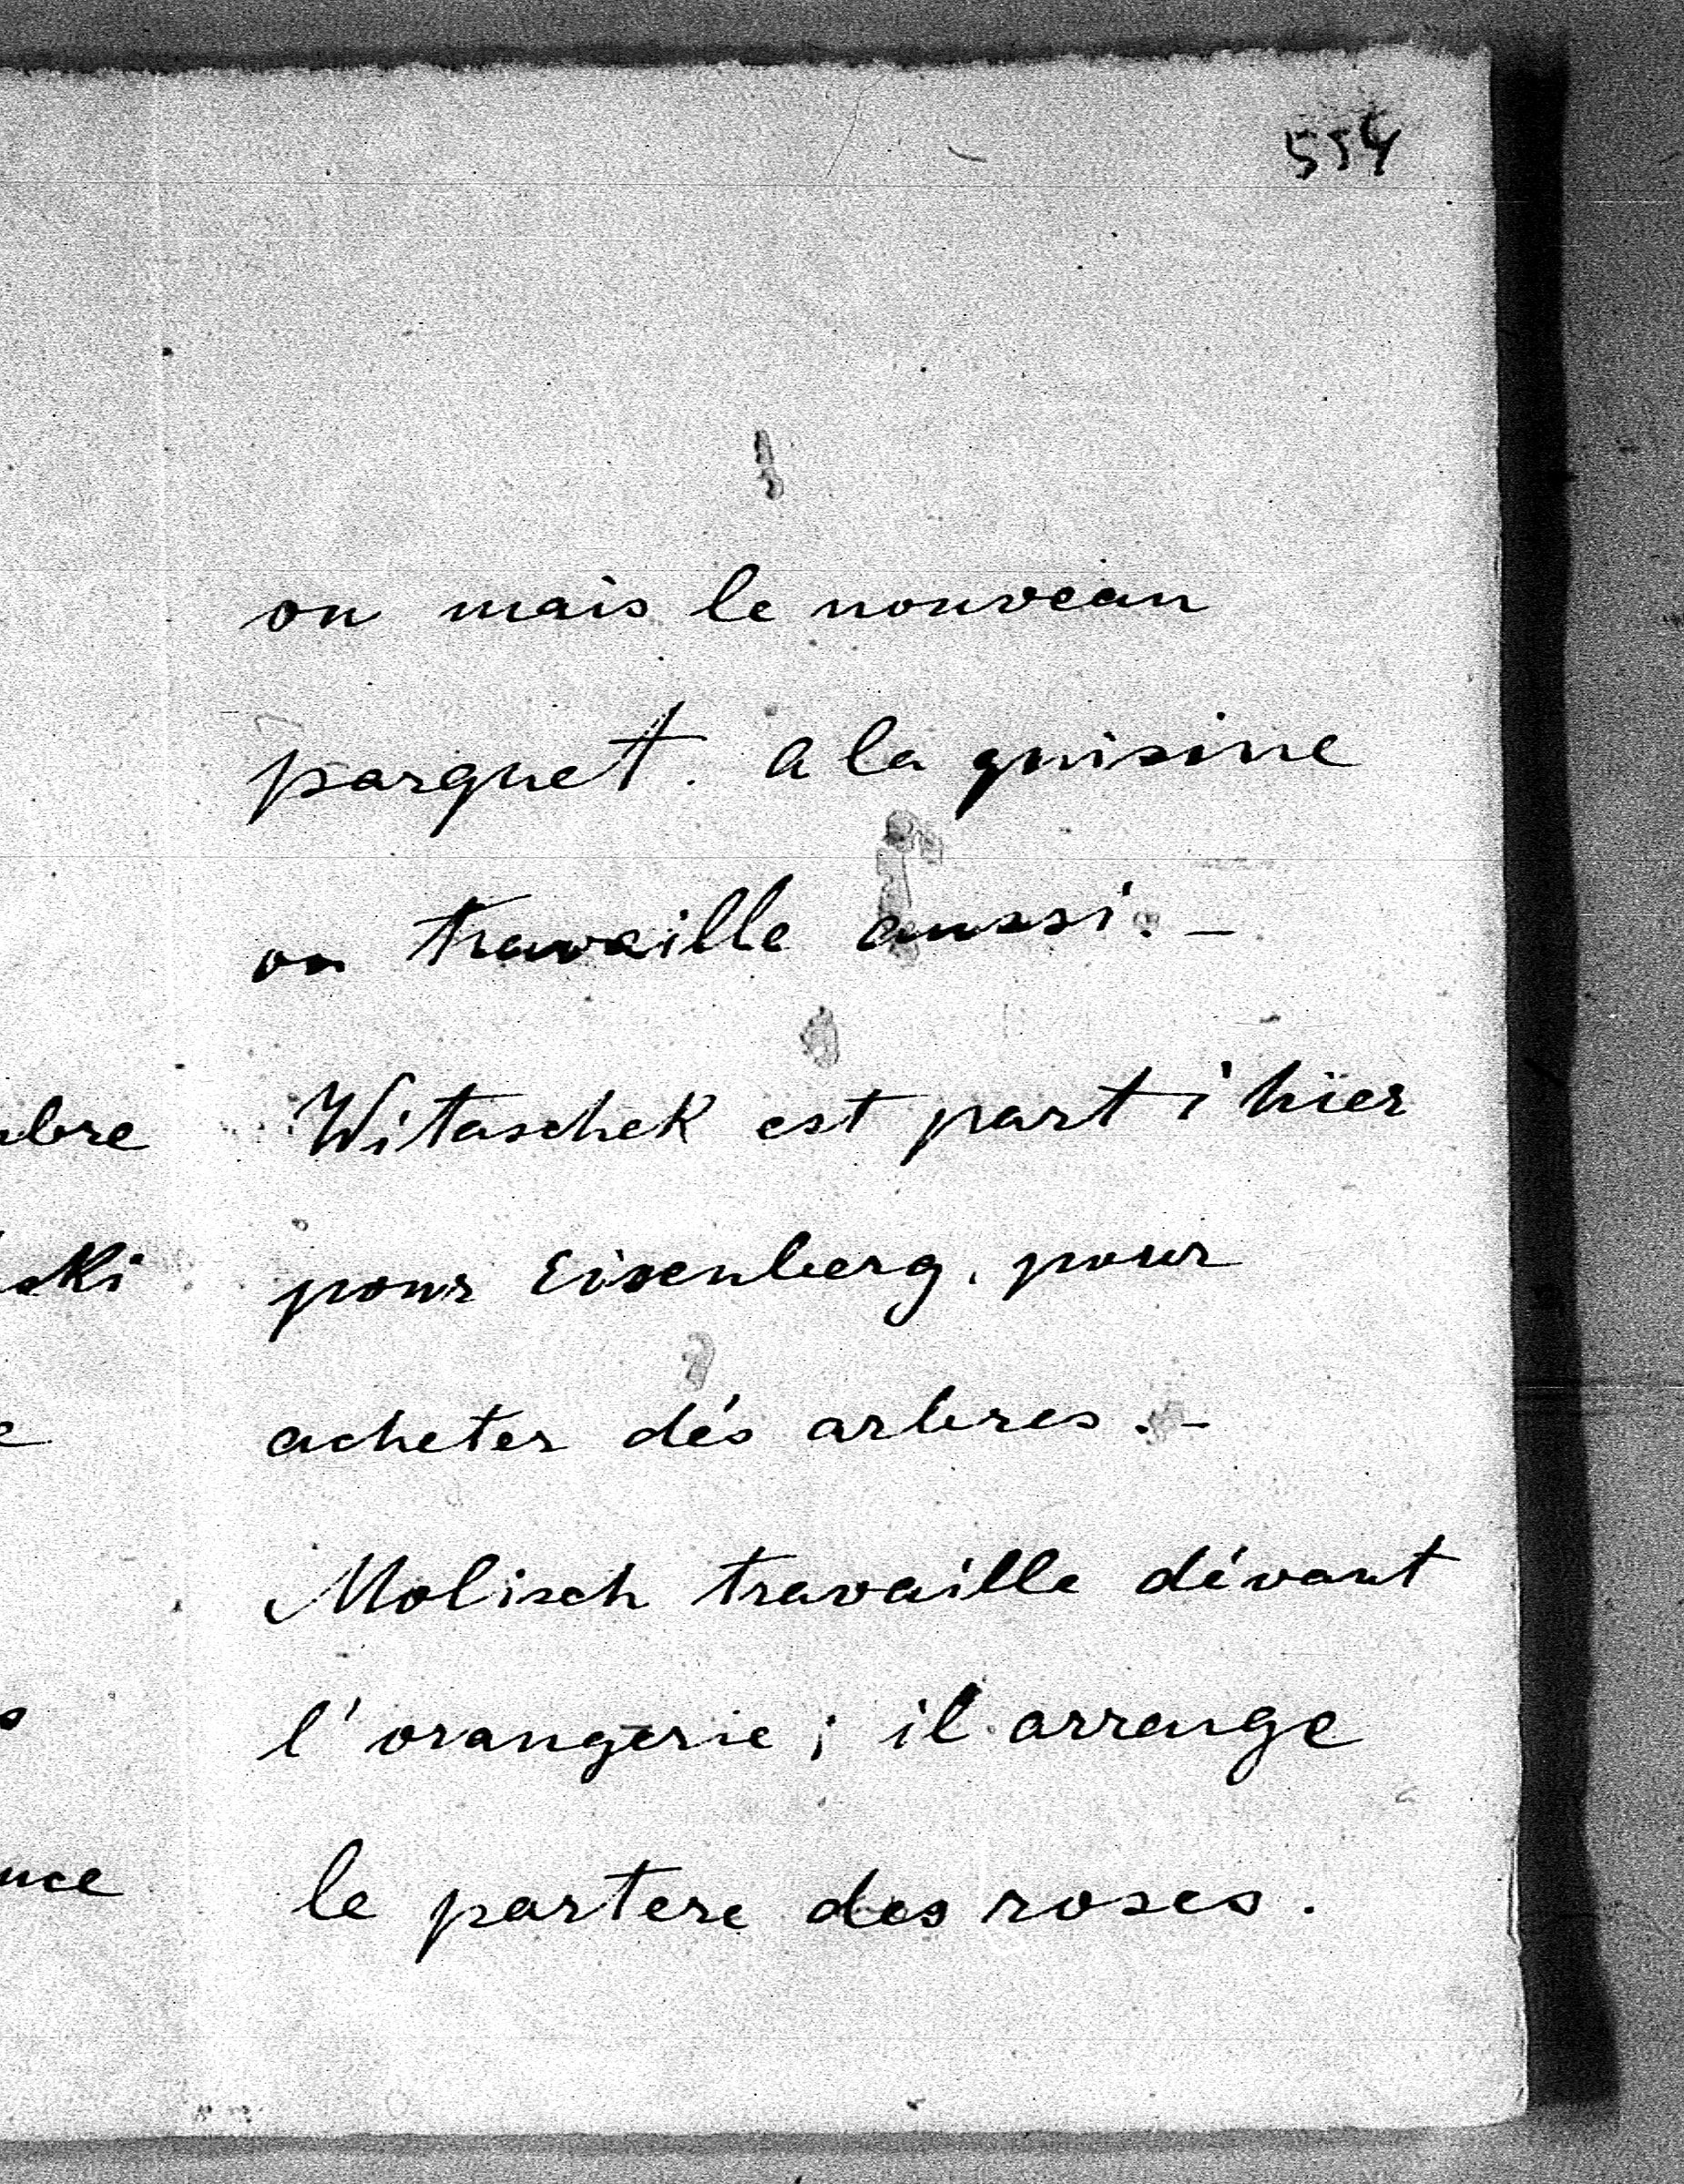 554
on mais le nouveau
parquet. A la quisine
on travaille aussi. –
Witaschek est parti hier
pour Eisenberg. pour
acheter dés arbres. –
Molisch travaille dévant
l'orangerie ; il arrange
le partere des roses.